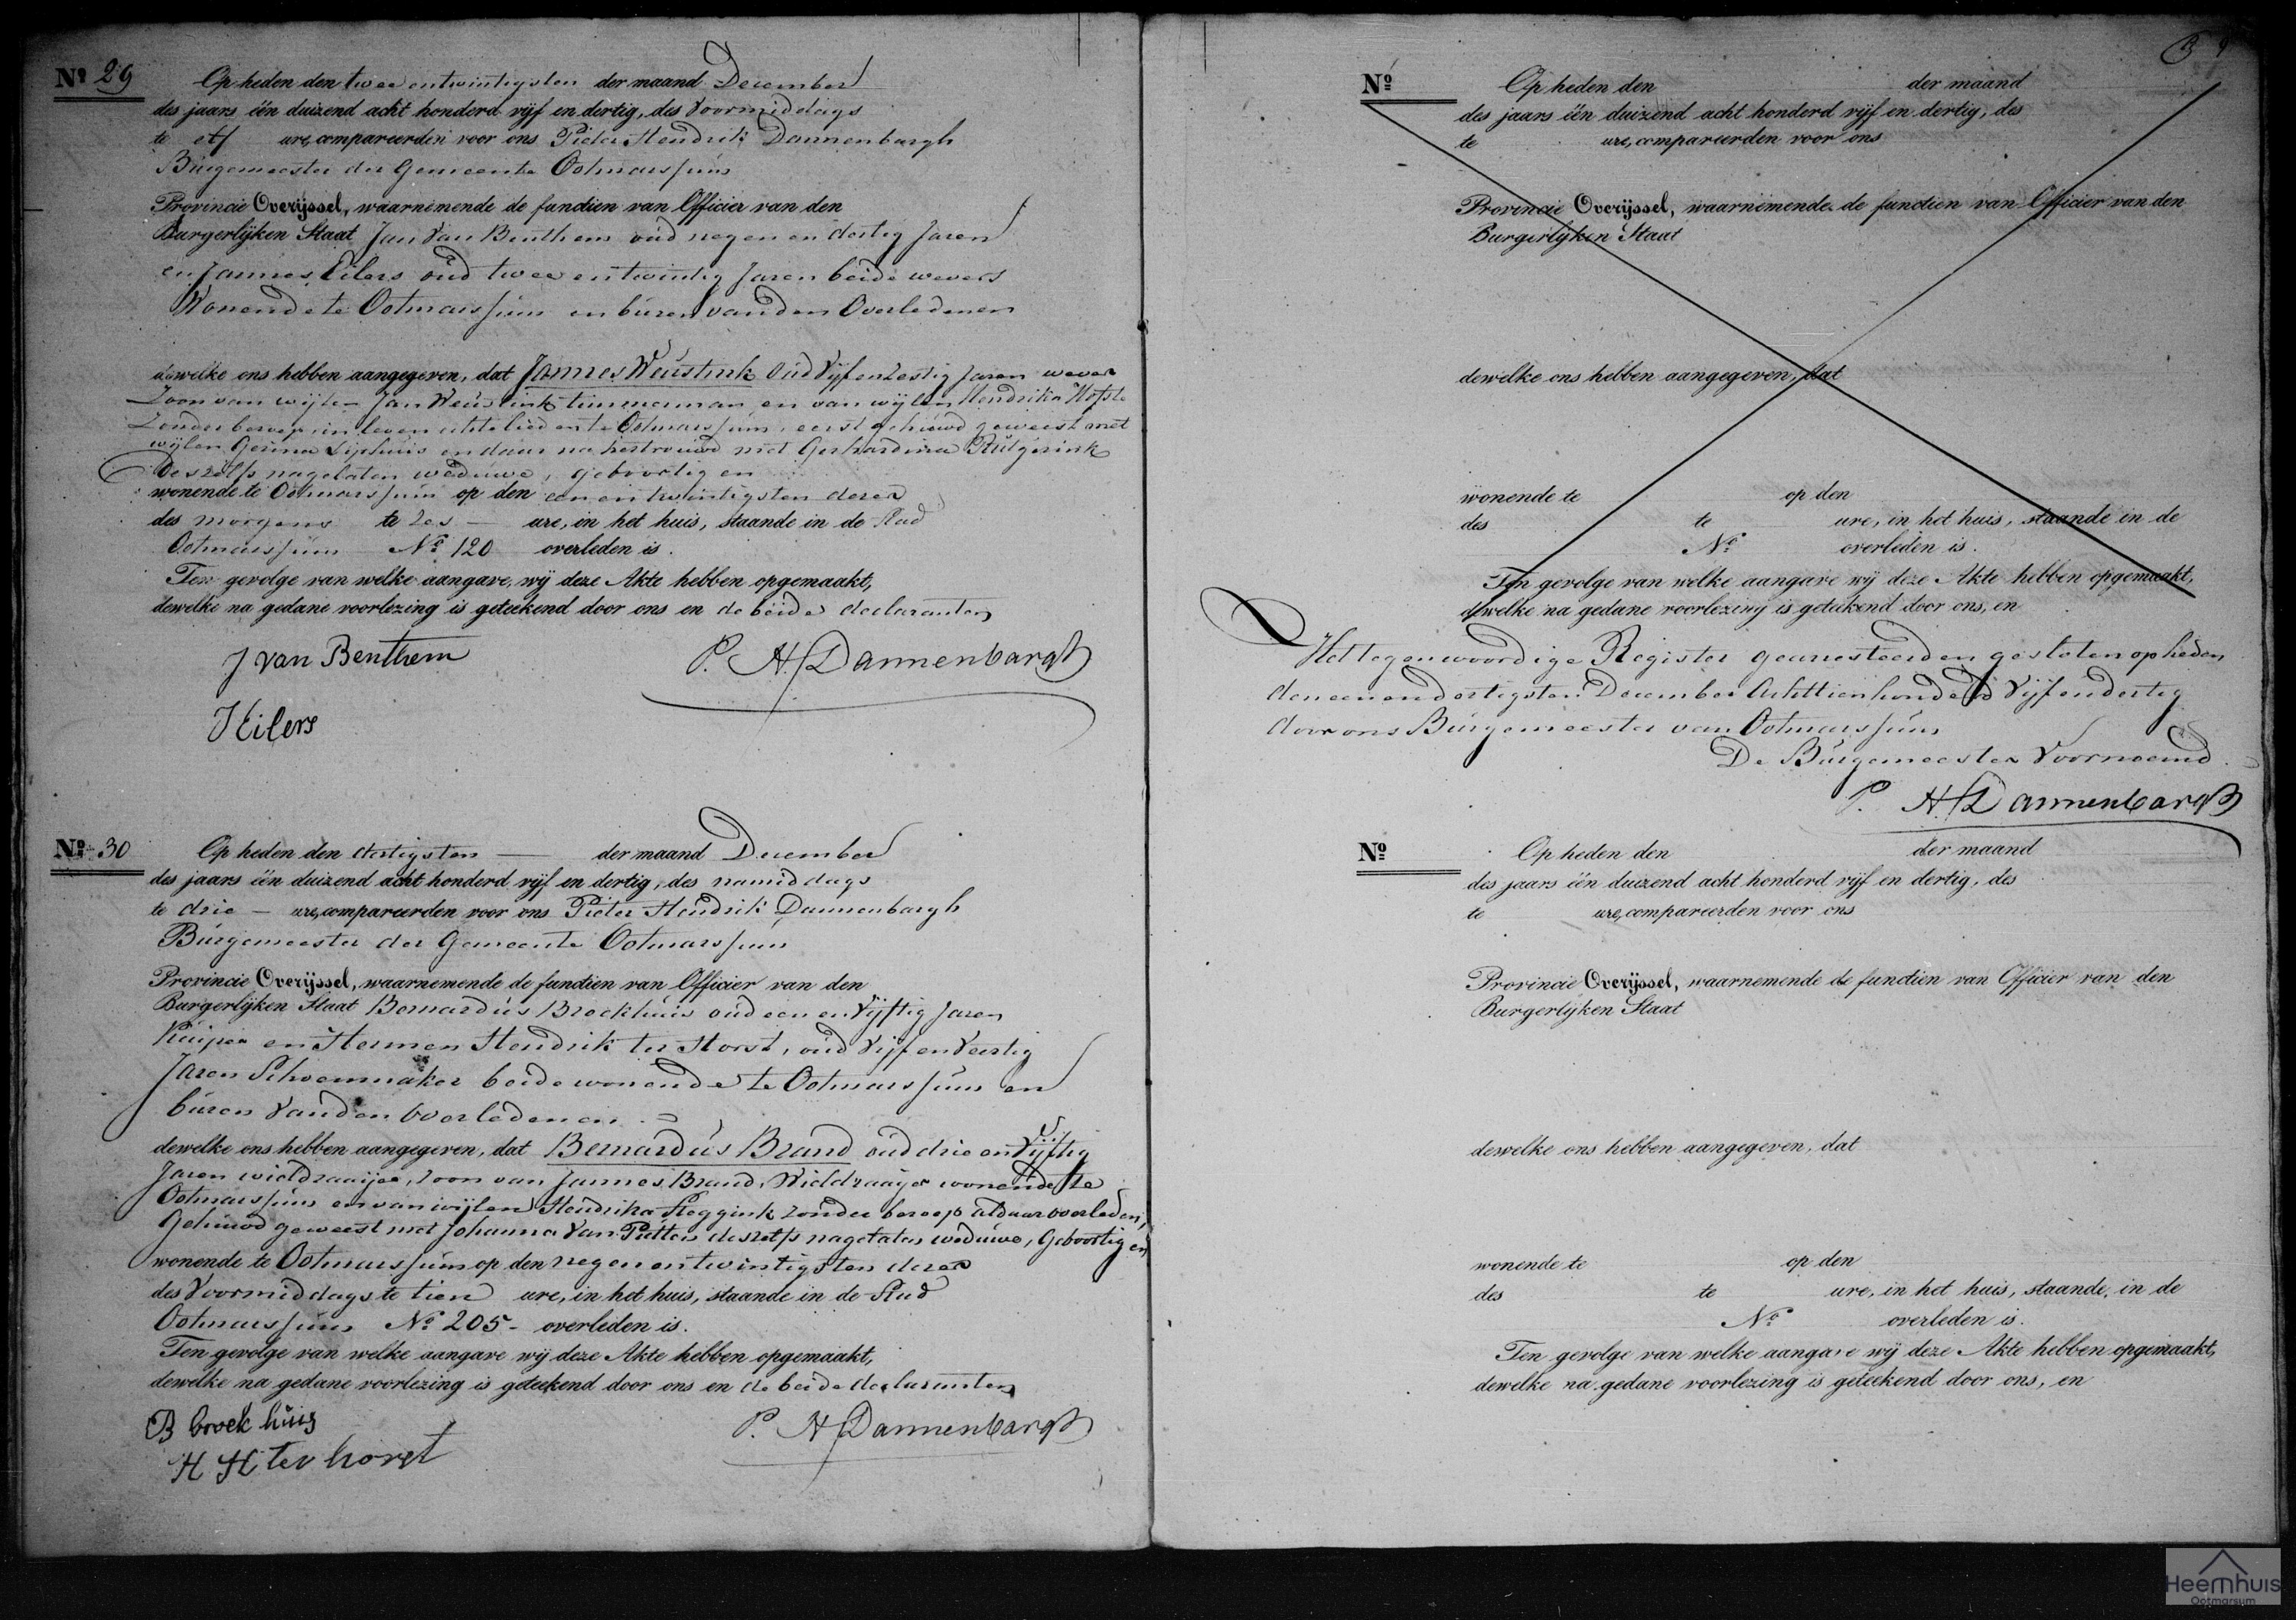 Nº 29 Op heden den twee entwintigsten der maand December
des jaars één duizend acht honderd vijf en dertig, des Voormiddags
te elf ure, compareerden voor ons Pieter Hendrik Dannenbargh
Burgemeester der Gemeente Ootmarssum
Provincie Overijssel, waarnemende de functien van Officier van den
Burgerlijken Staat Jan Van Benthem oud negen en dertig Jaren
en Jannes Eilers oud twee entwintig Jaren beide wevers
Wonende te Ootmarssum en buren van den Overledenen
dewelke ons hebben aangegeven, dat Jannes Weustink oud Vijf en Zestig Jaren wever
Zoon van wijlen Jan Weustink timmerman en van wijlen Hendrika Hofste
Zonder beroep, in leven echtelieden te Ootmarssum, eerst gehuwd geweest met
wijlen Gesina Siphuis en daar na hertrouwd met Gerhardina Rutgerink
deszelfs nagelaten weduwe, geboortig en
wonende te Ootmarssum op den een en twintigsten dezer
des morgens te zes — ure, in het huis, staande in de Stad
Ootmarssum Nº 120 overleden is.
Ten gevolge van welke aangave, wij deze Akte hebben opgemaakt,
dewelke na gedane voorlezing is geteekend door ons en de beide declaranten
J van Benthem P. H. Dannenbargh
J Eilers
Nº 30 Op heden den dertigsten — der maand December
des jaars één duizend acht honderd vijf en dertig, des namiddags
te drie — ure, compareerden voor ons Pieter Hendrik Dannenbargh
Burgemeester der Gemeente Ootmarssum
Provincie Overijssel, waarnemende de functien van Officier van den
Burgerlijken Staat Bernardus Broekhuis oud een en Vijftig Jaren
Kuiper en Hermen Hendrik ter Horst, oud Vijf en Veertig
Jaren Schoenmaker beide wonende te Ootmarssum en
buren van den overledenen
dewelke ons hebben aangegeven, dat Bernardus Brand oud drie en Vijftig
Jaren wieldraaijer, zoon van Jannes Brand, Wieldraaijer wonende te
Ootmarssum en van wijlen Hendrika Reggink zonder beroep aldaar overleden,
Gehuwd geweest met Johanna Van Putten deszelfs nagelaten weduwe, Geboortig en
wonende te Ootmarssum op den negen entwintigsten dezer
des Voormiddags te tien ure, in het huis, staande in de Stad
Ootmarssum Nº 205 - overleden is.
Ten gevolge van welke aangave wij deze Akte hebben opgemaakt,
dewelke na gedane voorlezing is geteekend door ons en de beide declaranten
B broek huis P. H Dannenbargh
H H ter horst
Nº Op heden den der maand
des jaars één duizend acht honderd vijf en dertig, des
te ure, compareerden voor ons
Provincie Overijssel, waarnemende de functien van Officier van den
Burgerlijken Staat
dewelke ons hebben aangegeven, dat
wonende te op den
des te ure, in het huis, staande in de
Nº overleden is.
Ten gevolge van welke aangave wij deze Akte hebben opgemaakt,
dewelke na gedane voorlezing is geteekend door ons, en
Het tegenwoordige Register gearresteerd en gesloten op heden
den een en dertigsten December Achttien honderd Vijf en dertig
door ons Burgemeester van Ootmarssum
De Burgemeester Voornoemd
P. H. Dannenbargh
Nº Op heden den der maand
des jaars één duizend acht honderd vijf en dertig, des
te ure, compareerden voor ons
Provincie Overijssel, waarnemende de functien van Officier van den
Burgerlijken Staat
dewelke ons hebben aangegeven, dat
wonende te op den
des te ure, in het huis, staande, in de
Nº overleden is.
Ten gevolge van welke aangave wij deze Akte hebben opgemaakt,
dewelke na gedane voorlezing is geteekend door ons, en
Heemhuis
Ootmarsum